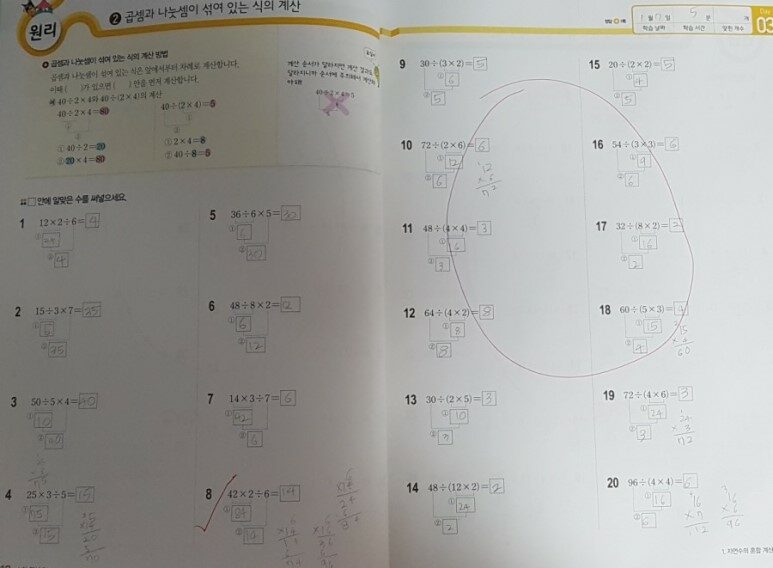 원리
❷ 곱셈과 나눗셈이 섞여 있는 식의 계산
곱셈과 나눗셈이 섞여 있는 식의 계산 방법
곱셈과 나눗셈이 섞여 있는 식은 앞에서부터 차례로 계산합니다.
이때 ( )가 있으면 ( ) 안을 먼저 계산합니다.
예 40÷2×4와 40÷(2×4)의 계산
40÷2×4=80
①
②
① 40÷2=20
② 20×4=80
40÷(2×4)=5
①
②
① 2×4=8
② 40÷8=5
계산 순서가 달라지면 계산 결과도
달라지니까 순서에 주의해서 계산해
야 해!
40÷2×4=5
□ 안에 알맞은 수를 써넣으세요.
1 12×2÷6=4
① 24
② 4
2 15÷3×7=35
① 5
② 35
3 50÷5×4=40
① 10
② 40
4 25×3÷5=15
① 75
② 15
5 36÷6×5=30
① 6
② 30
6 48÷8×2=12
① 6
② 12
7 14×3÷7=6
① 42
② 6
8 42×2÷6=14
① 84
② 14
1월 7일
5분
개
학습 날짜
학습 시간
맞힌 개수
DAY
03
9 30÷(3×2)=5
① 6
② 5
10 72÷(2×6)=6
① 12
② 6
12
×6
72
11 48÷(4×4)=3
① 16
② 3
12 64÷(4×2)=8
① 8
② 8
13 30÷(2×5)=3
① 10
② 3
14 48÷(12×2)=2
① 24
② 2
15 20÷(2×2)=5
① 4
② 5
16 54÷(3×3)=6
① 9
② 6
17 32÷(8×2)=2
① 16
② 2
18 60÷(5×3)=4
① 15
② 4
15
×4
60
19 72÷(4×6)=3
① 24
② 3
24
×3
72
20 96÷(4×4)=6
① 16
② 6
16
×7
112
16
×6
96
1. 자연수의 혼합 계산